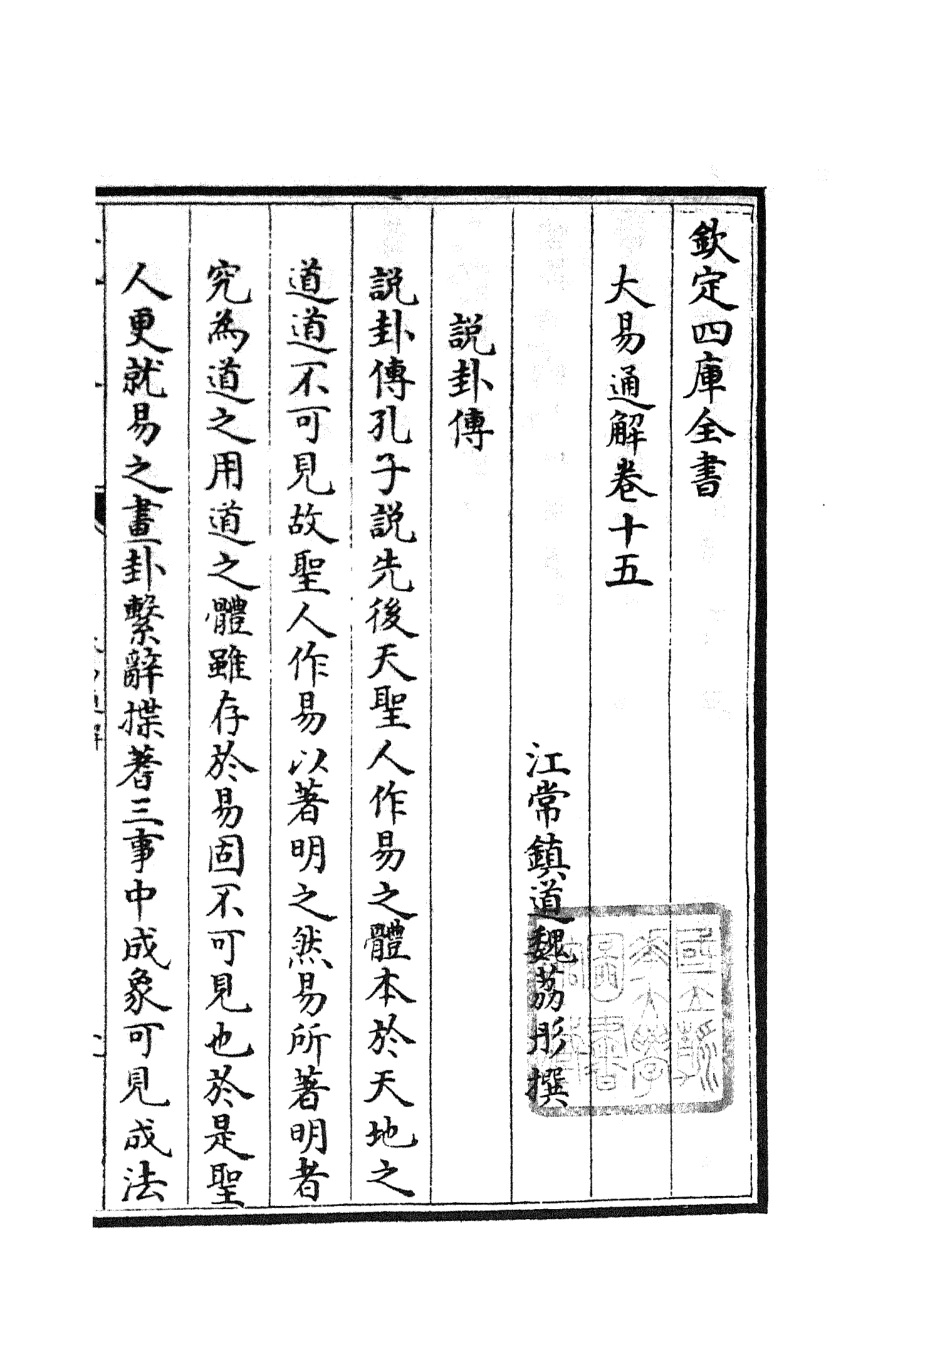 欽定四庫全書
大易通解卷十五
江常鎮道魏荔彤撰
説卦傳
説卦傳孔子説先後天聖人作易之體本於天地之
道道不可見故聖人作易以著明之然易所著明者
究為道之用道之體雖存於易固不可見也於是聖
人更就易之畫卦繫辭揲蓍三事中成象可見成法